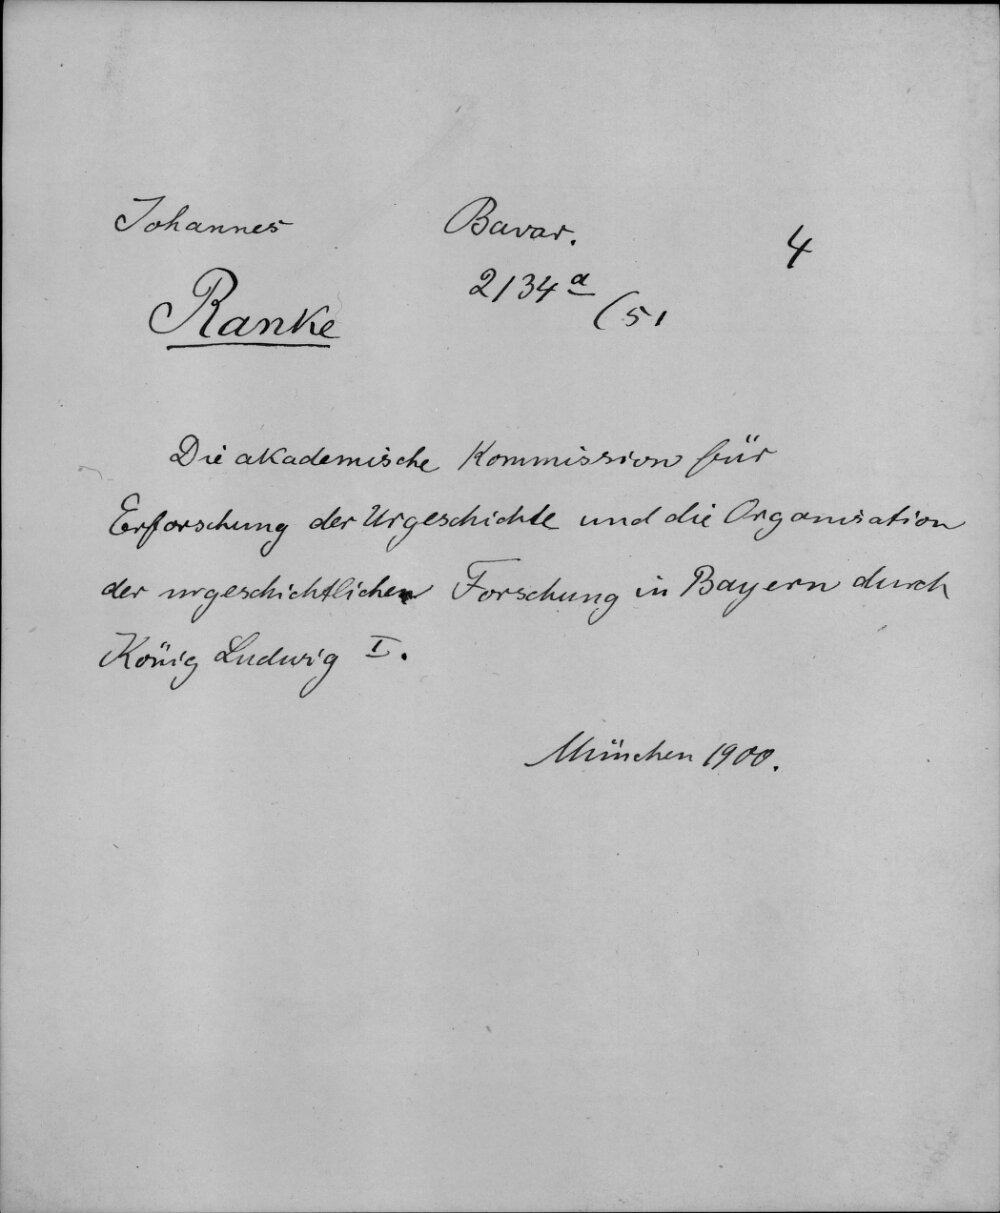 Johannes
Ranke
Bavar.
2134 a
(51
4
Die akademische Kommission für
Erforschung der Urgeschichte und die Organisation
der urgeschichtlichen Forschung in Bayern durch
König Ludwig I.
München 1900.